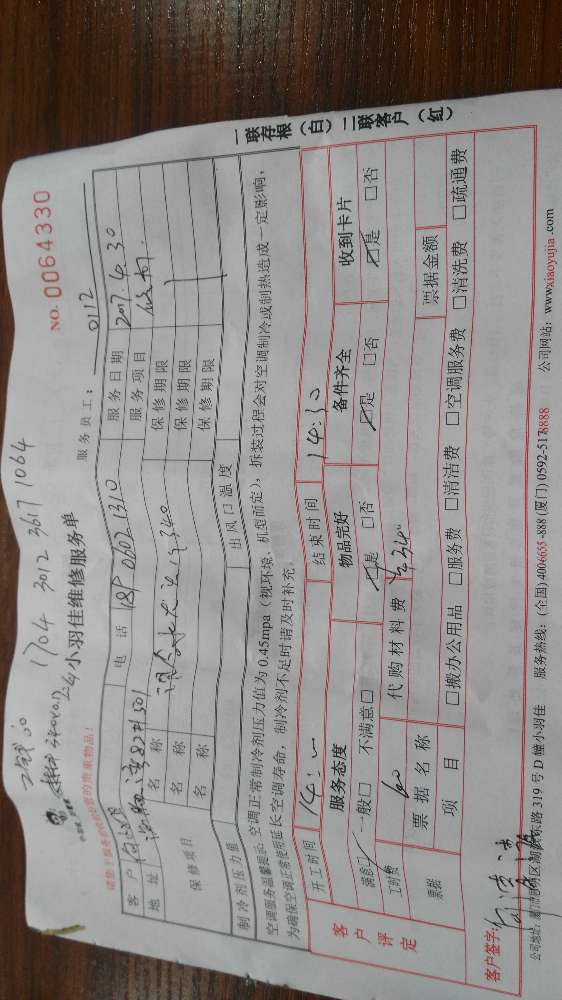 1704 3012 3617 1064
NO. 0064330
小羽佳维修服务单
服务员工： 0112
客户
电话 185 0602 1310
服务日期 2017.4.30
地址
服务项目
保修项目
名称
保修期限
名称
保修期限
名称
保修期限
制冷剂压力值
出风口温度
空调服务温馨提示：空调正常制冷剂压力值为0.45mpa（视环境、机型而定），拆装过程会对空调制冷或制热造成一定影响，
为确保空调正常使用延长空调寿命，制冷剂不足时请及时补充。
一联存根（白）二联客户（红）
客户评定
开工时间
结束时间 14:30
服务态度
物品完好
备件齐全
收到卡片
满意☑ 一般□ 不满意□
☑是 □否
☑是 □否
☑是 □否
工时费 60
代购材料费 ¥340
票据
票据名称
票据金额
项目
□搬办公用品 □服务费 □清洁费 □空调服务费 □清洗费 □疏通费
客户签字：
公司地址：厦门市思明区湖滨东路319号D幢小羽佳 服务热线：(全国) 4006655-888 (厦门) 0592-5178888 公司网站：www.xiaoyujia.com